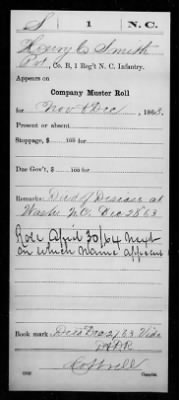 S 1 N.C.
Henry C Smith
Pvt, Co. B, 1 Reg't N. C. Infantry.
Appears on
Company Muster Roll
for Nov & Dec, 1863.
Present or absent
Stoppage, $ 100 for
Due Gov't, $ 100 for
Remarks: Died of Disease at
Wash N.C. Dec 28 63
Role April 30/64 next
on which name appears
Book mark Died Dec 2 /63 Vide
Copyist.